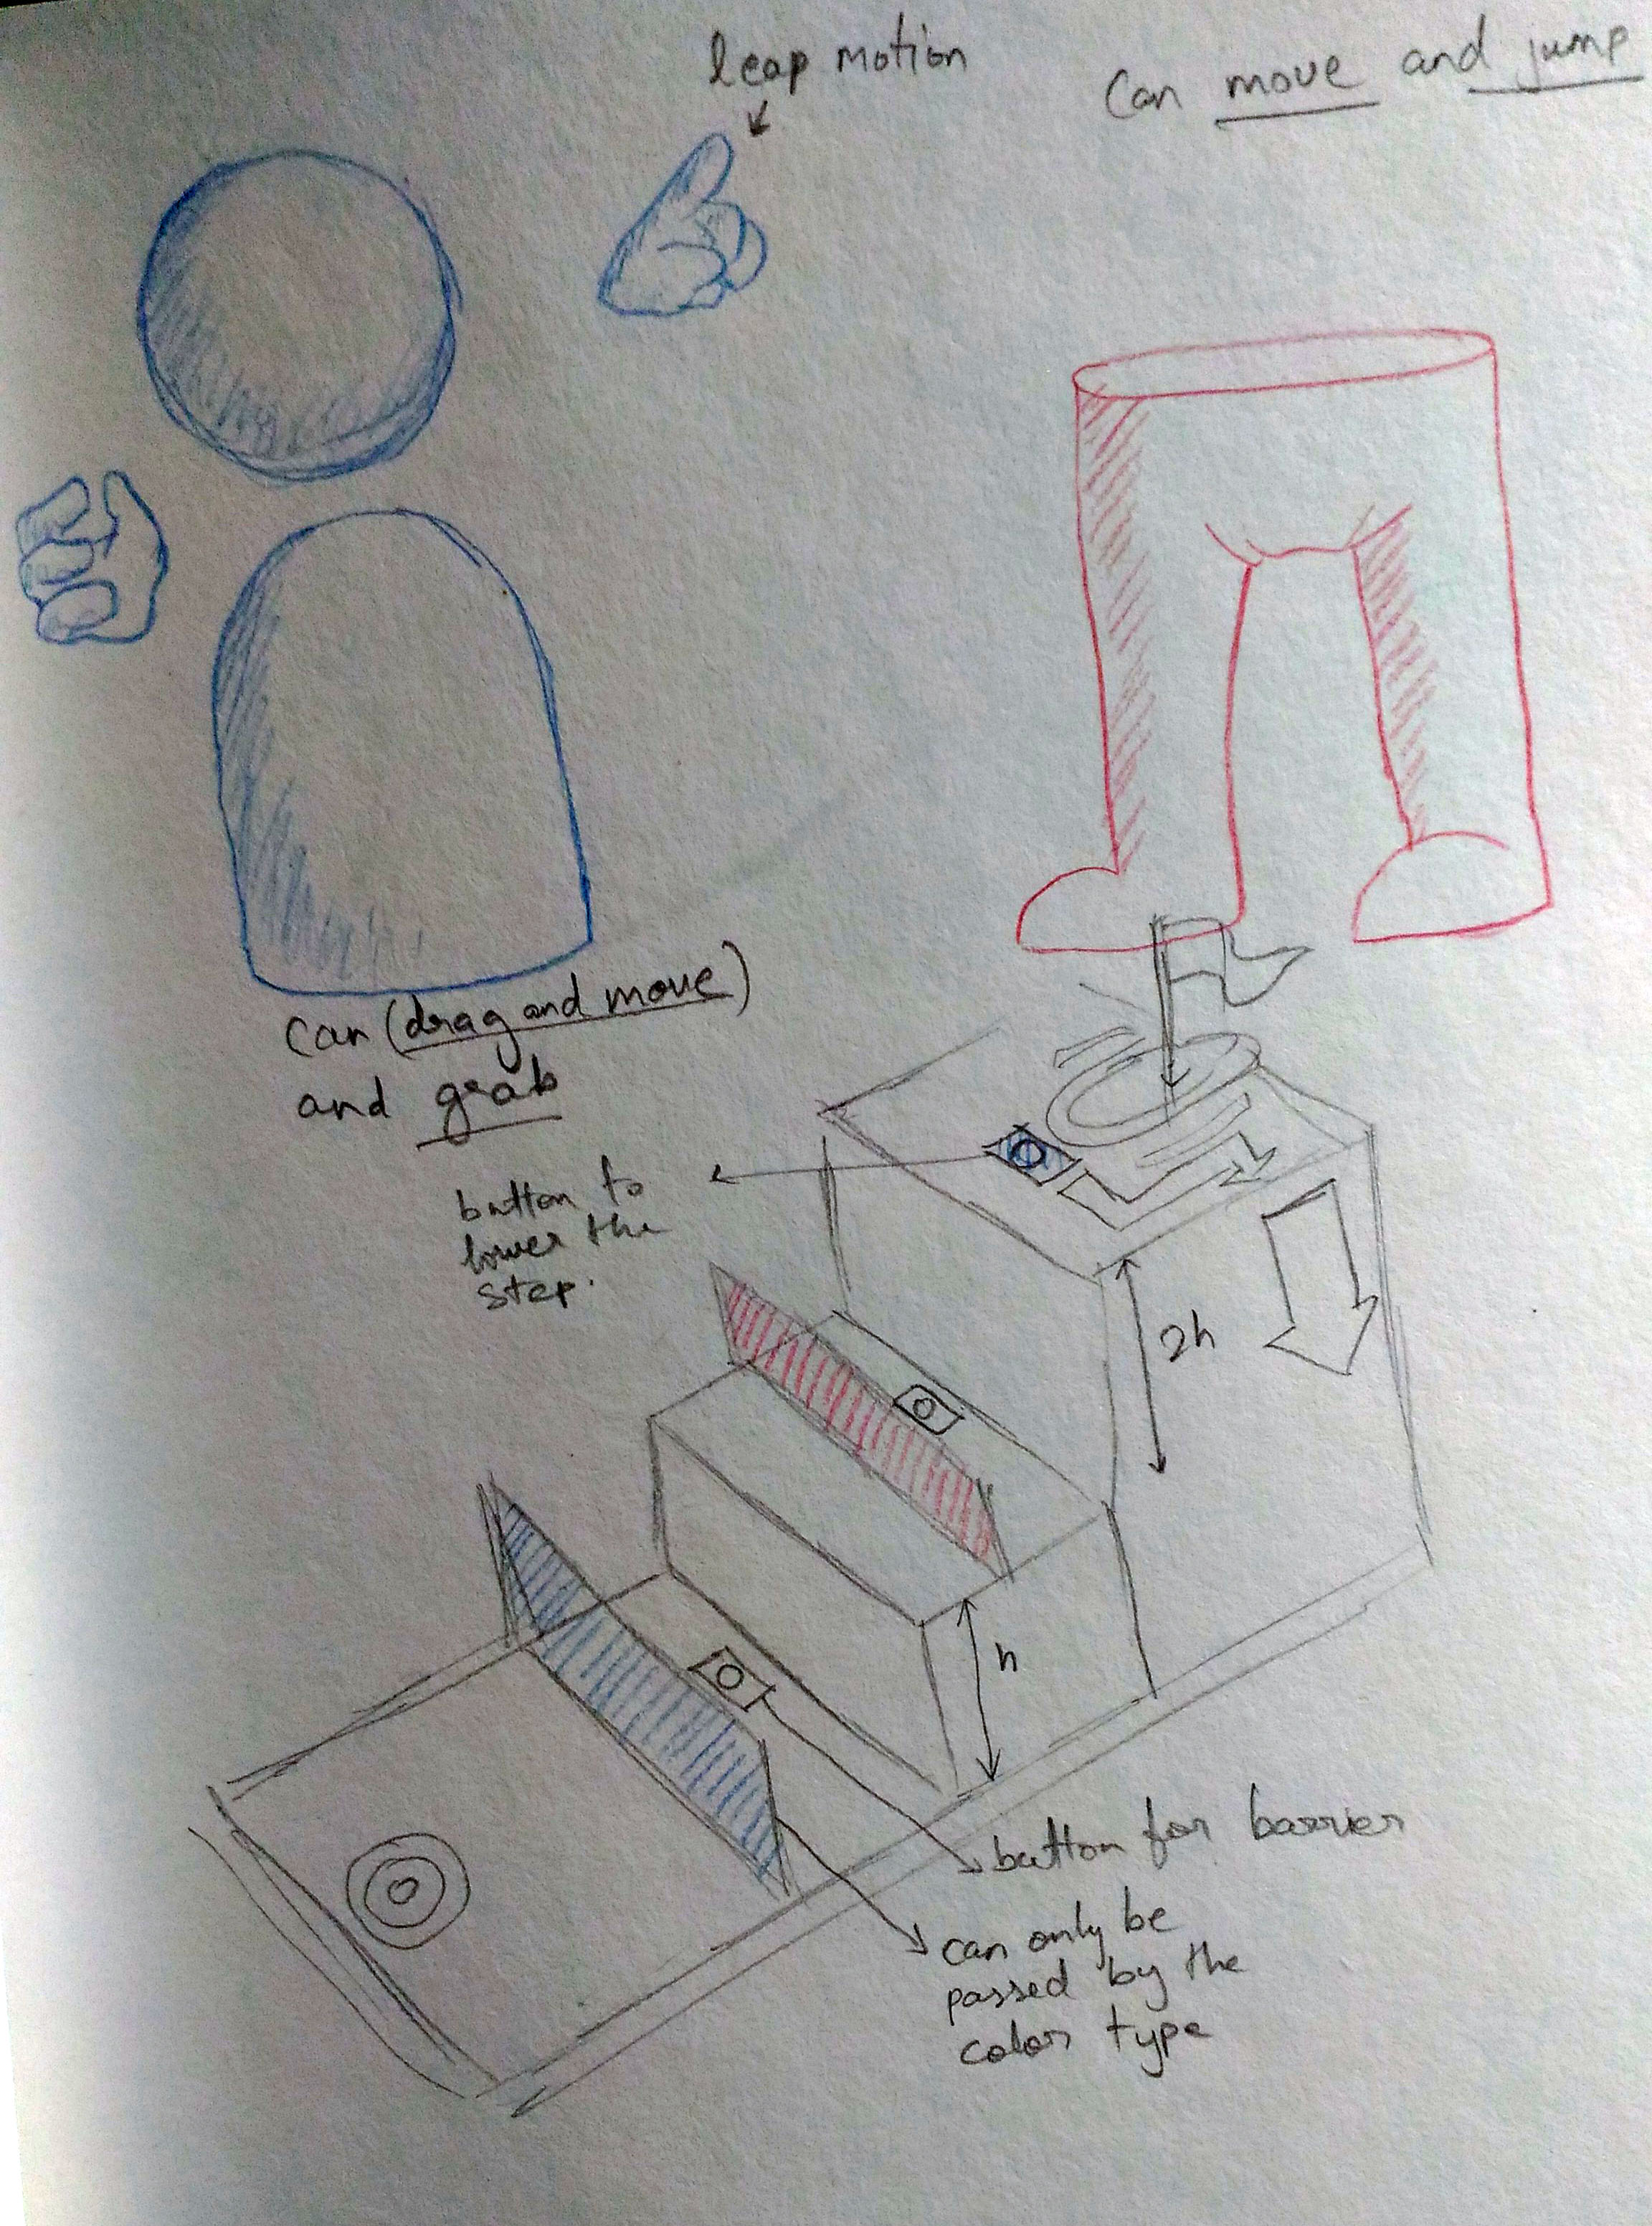 leap motion
Can move and jump
can (drag and move)
and grab
button to
lower the
step.
2h
h
button for barrier
can only be
passed by the
color type